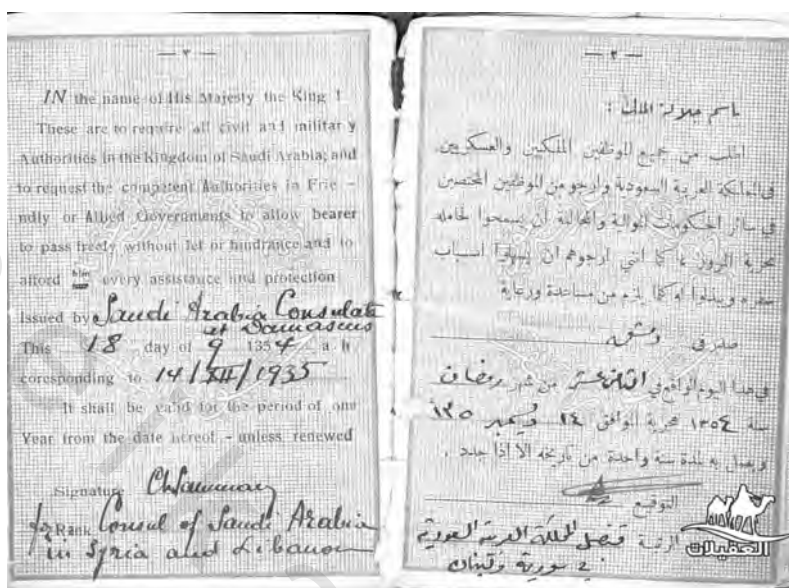 — ٣ —
IN the name of His Majesty the King !
These are to require all civil and militar y
Authorities in the Kingdom of Saudi Arabia; and
to request the competent Authorities in Frie -
ndly or Allied Governments to allow bearer
to pass freely without let or hindrance and to
afford him every assistance and protection
Issued by Saudi Arabia Consulate
at Damascus
This 18 day of 9 1354 a.h
coresponding to 14/XII/1935
It shall be valid for the period of one
Year from the date hereof - unless renewed
Signature
Rank Consul of Saudi Arabia
in Syria and Libanon
— ٢ —
باسم جلالة الملك :
اطلب من جميع الموظفين الملكيين والعسكريين
في المملكة العربية السعودية وارجو من الموظفين المختصين
في سائر الحكومات الموالية والمحالفة أن يسمحوا لحامله
بحرية المرور ، كما انني ارجوهم ان يسهلوا أسباب
سفره ويبذلوا له كلما يلزم من مساعدة ورعاية
صدر في دمشق
في هذا اليوم الواقع في الثامن عشر من شهر رمضان
سنة ١٣٥٤ هجرية الموافق ١٤ ديسمبر
ويعمل به لمدة سنة واحدة من تاريخه الا اذا جدد .
التوقيع
الرتبة قنصل المملكة العربية السعودية
في سورية ولبنان
العقيلات